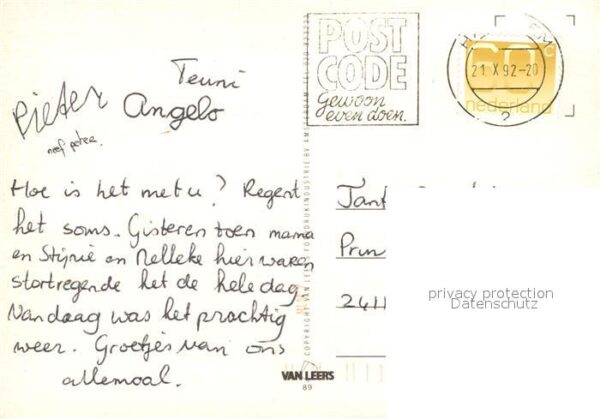 POST
CODE
Gewoon
even doen.
21 X 92-20
60c
nederland
Teuni
Pieter
Angelo
neef peter.
Hoe is het met u? Regent
het soms. Gisteren toen mama
en Stijnie en Nelleke hier waren
stortregende het de hele dag
Vandaag was het prachtig
weer. Groetjes van ons
allemaal.
Tant
Prin
2411
privacy protection
Datenschutz
VAN LEERS
89